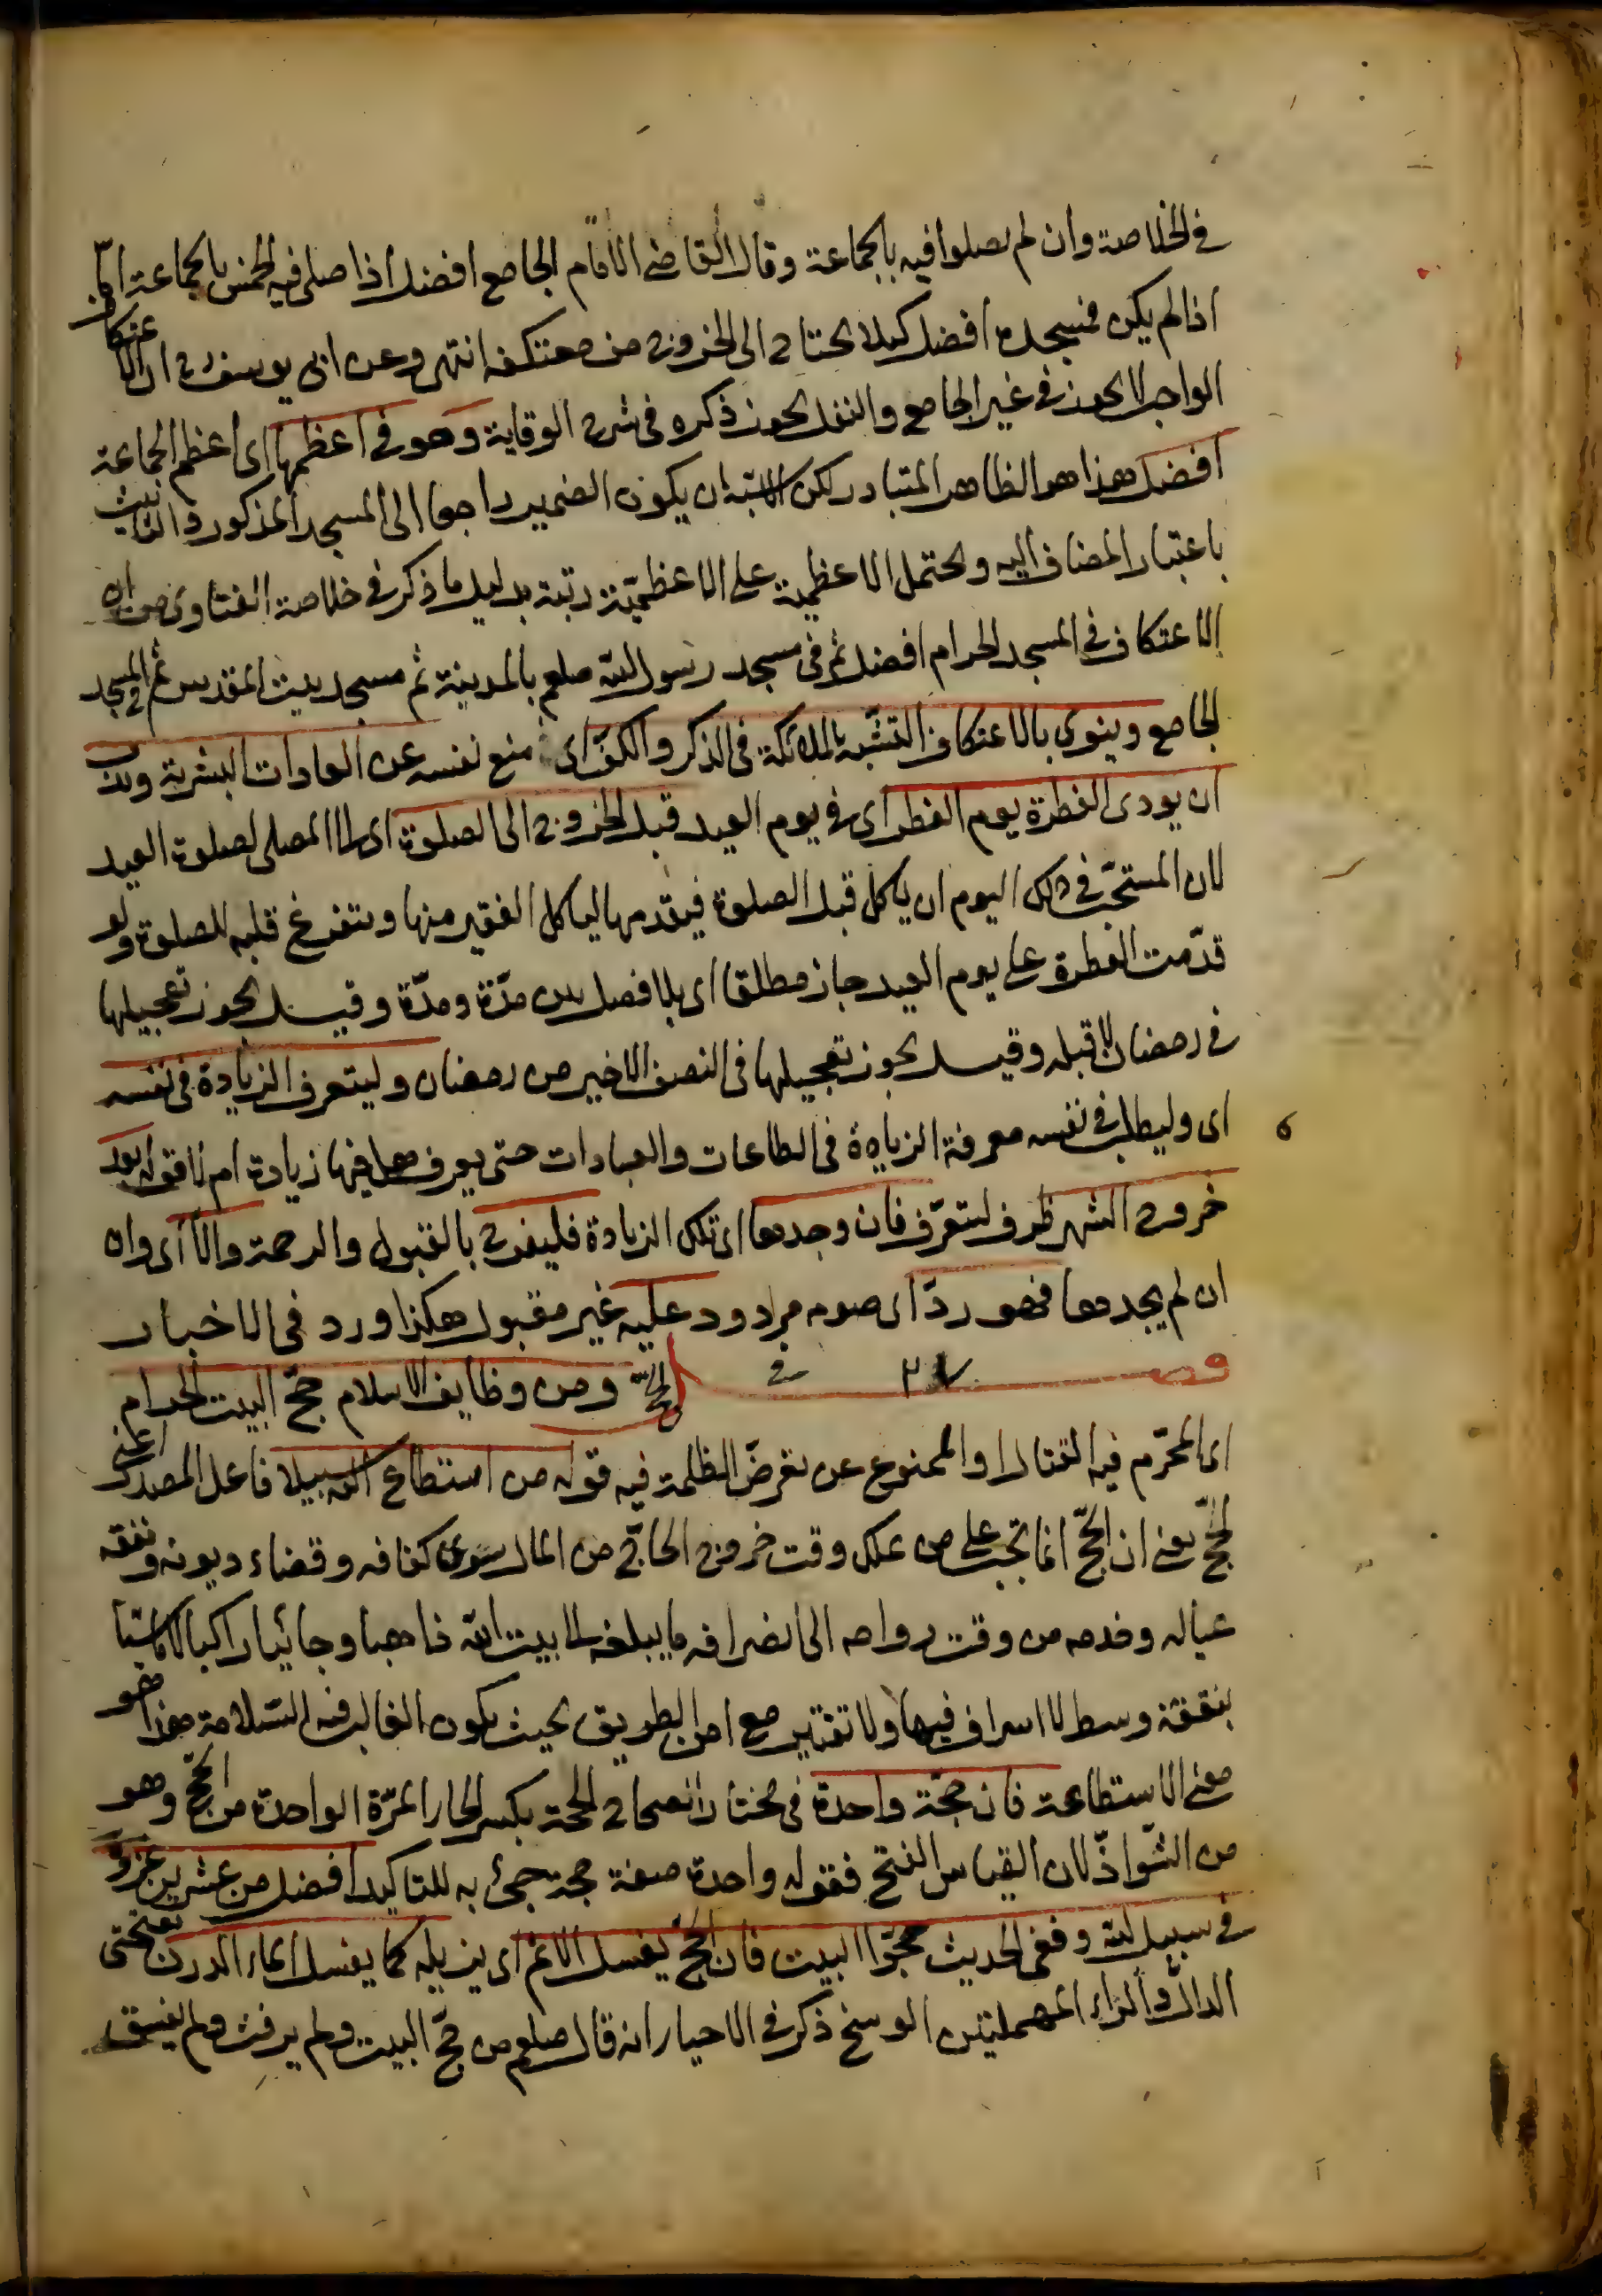 في الخلاصة وان لم يصلوا فيه بالجماعة وقال القاضى الامام الجامع افضل اذا صلى فيه الخمس بالجماعة اما
اذا لم يكن فمسجده افضل كيلا يحتاج الى الخروج من معتكفه انتهى وعن ابى يوسف رح ان الاعتكاف
الواجب لا يجوز في غير الجامع والنفل يجوز ذكره فى شرح الوقاية وهو فى اعظمها اى اعظم الجماعة
افضل هذا هو الظاهر المتبادر لكن الاشبه ان يكون الضمير راجعا الى المسجد المذكور والتانيث
باعتبار المضاف اليه ويحتمل الاعظمية على الاعظميّة رتبة بدليل ما ذكر في خلاصة الفتاوى من ان
الاعتكاف فى المسجد الحرام افضل ثم فى مسجد رسول الله صلعم بالمدينة ثم مسجد بيت المقدس ثم فى المسجد
الجامع وينوى بالاعتكاف التشبّه بالملائكة فى الذكر والكفّ اى منع نفسه عن العادات البشرية
ان يودى الفطرة يوم الفطر اى فى يوم العيد قبل الخروج الى الصلوة اى الى المصلى لصلوة العيد
لان المستحب فى ذلك اليوم ان ياكل قبل الصلوة فيقدمها لياكل الفقير منها ويتفرغ قلبه للصلوة ولو
قدّمت الفطرة على يوم العيد جاز مطلقا اى بلا فصل بين مدّة ومدّة وقيل يجوز تعجيلها
فى رمضان لا قبله وقيل يجوز تعجيلها فى النصف الاخير من رمضان وليتعرف الزيادة فى نفسه
اى وليطلب فى نفسه معرفة الزيادة فى الطاعات والعبادات حتى يعرف هل فيها زيادة ام لا قوله بعد
خروج الشهر ظرف ليتعرّف فان وجدها اى تلك الزيادة فليفرح بالقبول والرحمة والّا اى وان
ان لم يجدها فهو ردّ اى صومه مردود عليه غير مقبول هكذا ورد فى الاخبار
فصل فى الحجّ ومن وظايف الاسلام حجّ البيت الحرام
اى المحرّم فيه القتال او الممنوع عن تعرض الظلمة فيه قوله من استطاع اليه سبيلا فاعل المصدر اعنى
الحجّ يعنى ان الحجّ انما تجب على من يملك وقت خروج الحاجّ من المال سوى كفافه وقضاء ديونه ونفقه
عياله وخدمه من وقت رواحه الى انصرافه ما يبلغه الى بيت الله ذاهبا وجائيا راكبا لا ماشيا
بنفقة وسط لا اسراف فيها ولا تقتير مع امن الطريق بحيث يكون الغالب فيه السّلامة هذا هو
معنى الاستطاعة فان حجّة واحدة فى مختار الصحاح الحجة بكسر الحاء المرّة الواحدة من الحجّ وهو
من الشّواذّ لان القياس الفتح فقوله واحدة صفة حجة جئ به للتاكيد افضل من عشرين غزوة
فى سبيل الله وفى الحديث حجّوا البيت فان الحجّ يغسل الاثم اى يزيله كما يغسل الماء الدرن بفتحتى
الدال والراء المهملتين الوسخ ذكر فى الاحياء انه قال صلعم من حجّ البيت ولم يرفث ولم يفسق